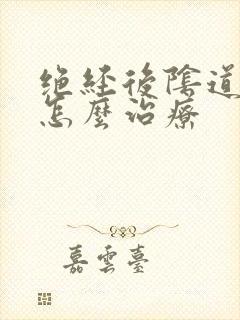 绝经後陰道
怎麼治療
嘉雲臺